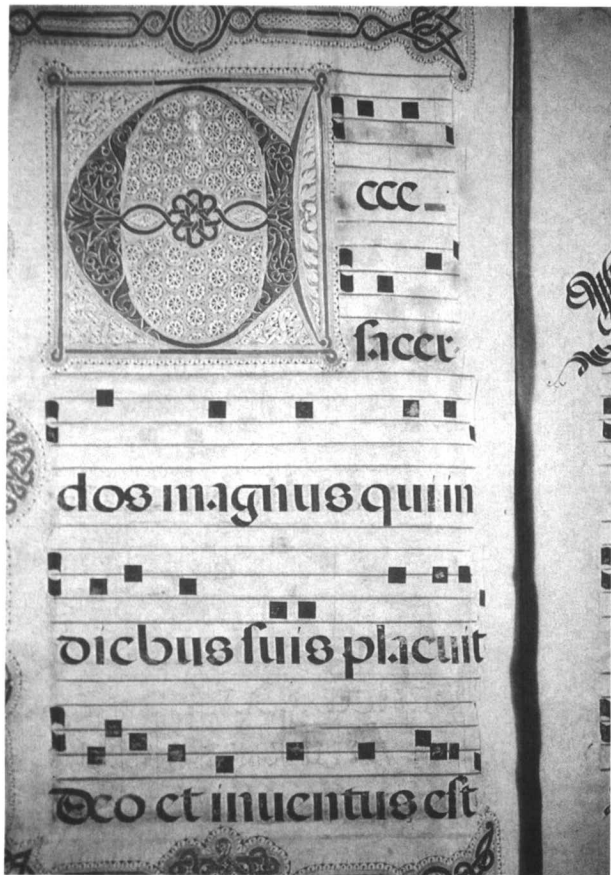 Ecce
ſacer
dos magnus qui in
diebus ſuis placuit
deo et inuentus eſt